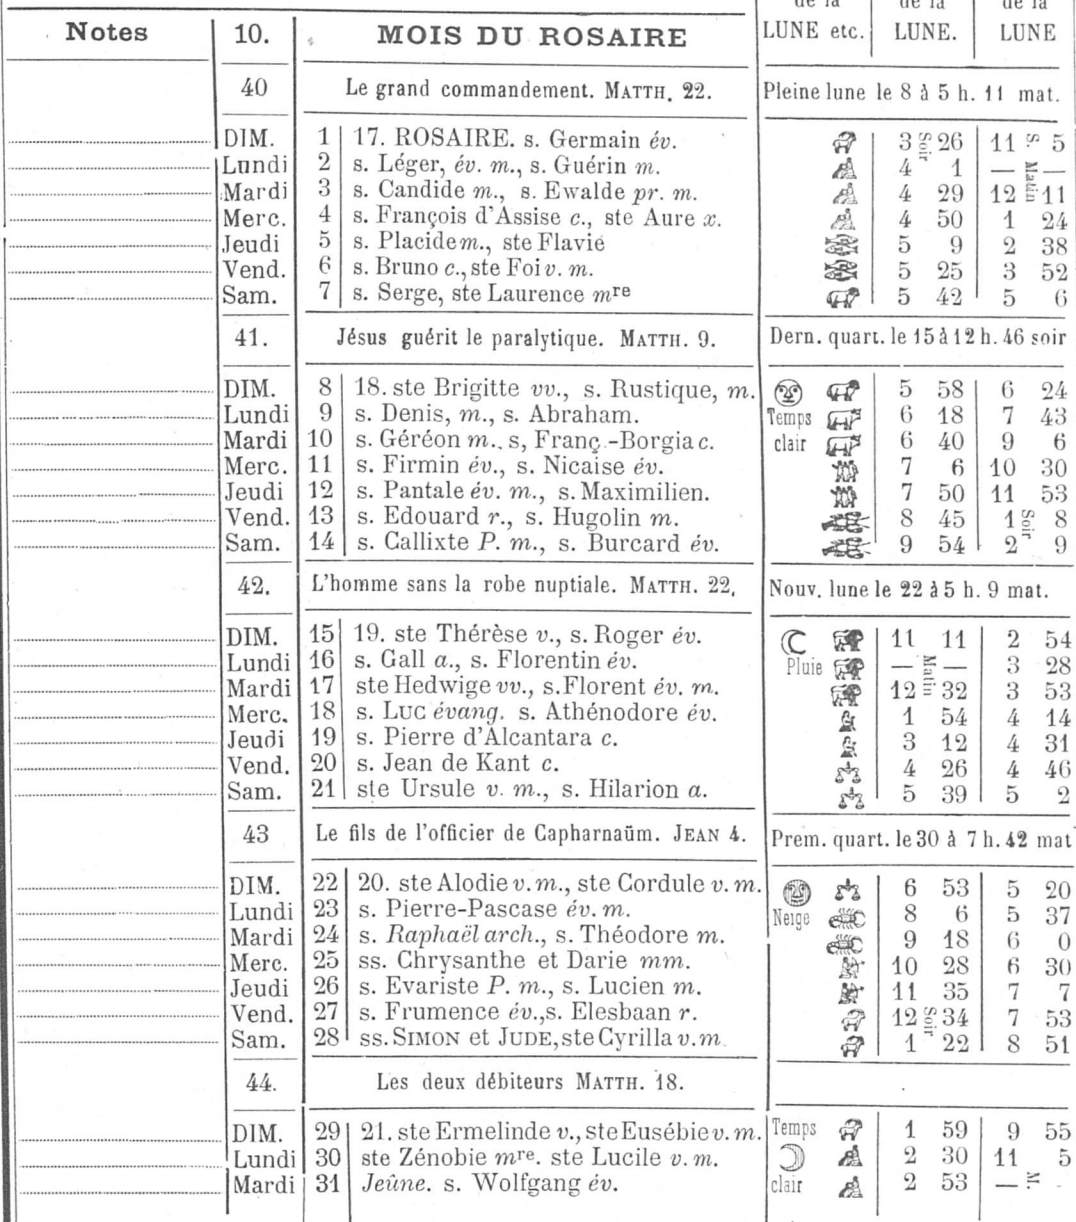 de la de la de la
Notes 10. MOIS DU ROSAIRE LUNE etc. LUNE. LUNE
40 Le grand commandement. MATTH. 22. Pleine lune le 8 à 5 h. 11 mat.
DIM. 1 17. ROSAIRE. s. Germain év. 3 Soir 26 11 S. 5
Lundi 2 s. Léger, év. m., s. Guérin m. 4 1 — Matin —
Mardi 3 s. Candide m., s. Ewalde pr. m. 4 29 12 11
Merc. 4 s. François d'Assise c., ste Aure x. 4 50 1 24
Jeudi 5 s. Placide m., ste Flavie 5 9 2 38
Vend. 6 s. Bruno c., ste Foi v. m. 5 25 3 52
Sam. 7 s. Serge, ste Laurence mre 5 42 5 6
41. Jésus guérit le paralytique. MATTH. 9. Dern. quart. le 15 à 12 h. 46 soir
DIM. 8 18. ste Brigitte vv., s. Rustique, m. 5 58 6 24
Lundi 9 s. Denis, m., s. Abraham. Temps 6 18 7 43
Mardi 10 s. Géréon m., s, Franç.-Borgia c. clair 6 40 9 6
Merc. 11 s. Firmin év., s. Nicaise év. 7 6 10 30
Jeudi 12 s. Pantale év. m., s. Maximilien. 7 50 11 53
Vend. 13 s. Edouard r., s. Hugolin m. 8 45 1 Soir 8
Sam. 14 s. Callixte P. m., s. Burcard év. 9 54 2 9
42. L'homme sans la robe nuptiale. MATTH. 22. Nouv. lune le 22 à 5 h. 9 mat.
DIM. 15 19. ste Thérèse v., s. Roger év. 11 11 2 54
Lundi 16 s. Gall a., s. Florentin év. Pluie — Matin — 3 28
Mardi 17 ste Hedwige vv., s. Florent év. m. 12 32 3 53
Merc. 18 s. LUC évang. s. Athénodore év. 1 54 4 14
Jeudi 19 s. Pierre d'Alcantara c. 3 12 4 31
Vend. 20 s. Jean de Kant c. 4 26 4 46
Sam. 21 ste Ursule v. m., s. Hilarion a. 5 39 5 2
43 Le fils de l'officier de Capharnaüm. JEAN 4. Prem. quart. le 30 à 7 h. 42 mat
DIM. 22 20. ste Alodie v. m., ste Cordule v. m. 6 53 5 20
Lundi 23 s. Pierre-Pascase év. m. Neige 8 6 5 37
Mardi 24 s. Raphaël arch., s. Théodore m. 9 18 6 0
Merc. 25 ss. Chrysanthe et Darie mm. 10 28 6 30
Jeudi 26 s. Evariste P. m., s. Lucien m. 11 35 7 7
Vend. 27 s. Frumence év., s. Elesbaan r. 12 Soir 34 7 53
Sam. 28 ss. SIMON et JUDE, ste Cyrilla v. m. 1 22 8 51
44. Les deux débiteurs MATTH. 18.
DIM. 29 21. ste Ermelinde v., ste Eusébie v. m. Temps 1 59 9 55
Lundi 30 ste Zénobie mre. ste Lucile v. m. 2 30 11 5
Mardi 31 Jeûne. s. Wolfgang év. clair 2 53 — M. -